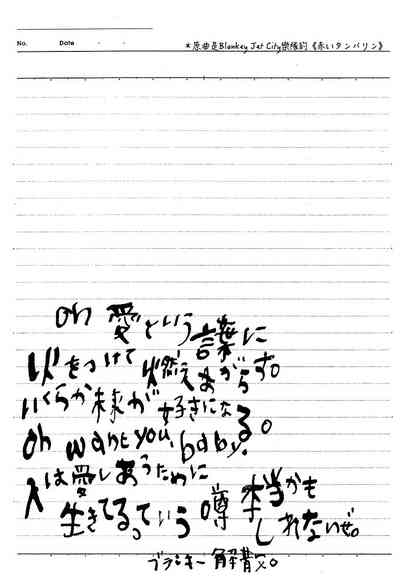 No.    Date    ・    ・
*原曲是Blankey Jet City樂隊的《赤いタンバリン》
oh 愛という言葉に
火をつけて燃えあがらす。
いくらか隙が好きになる。
oh want you, baby.
人は愛しあうために
生きてるっていう噂 本当かも
しれないぜ。
ブランキー解散